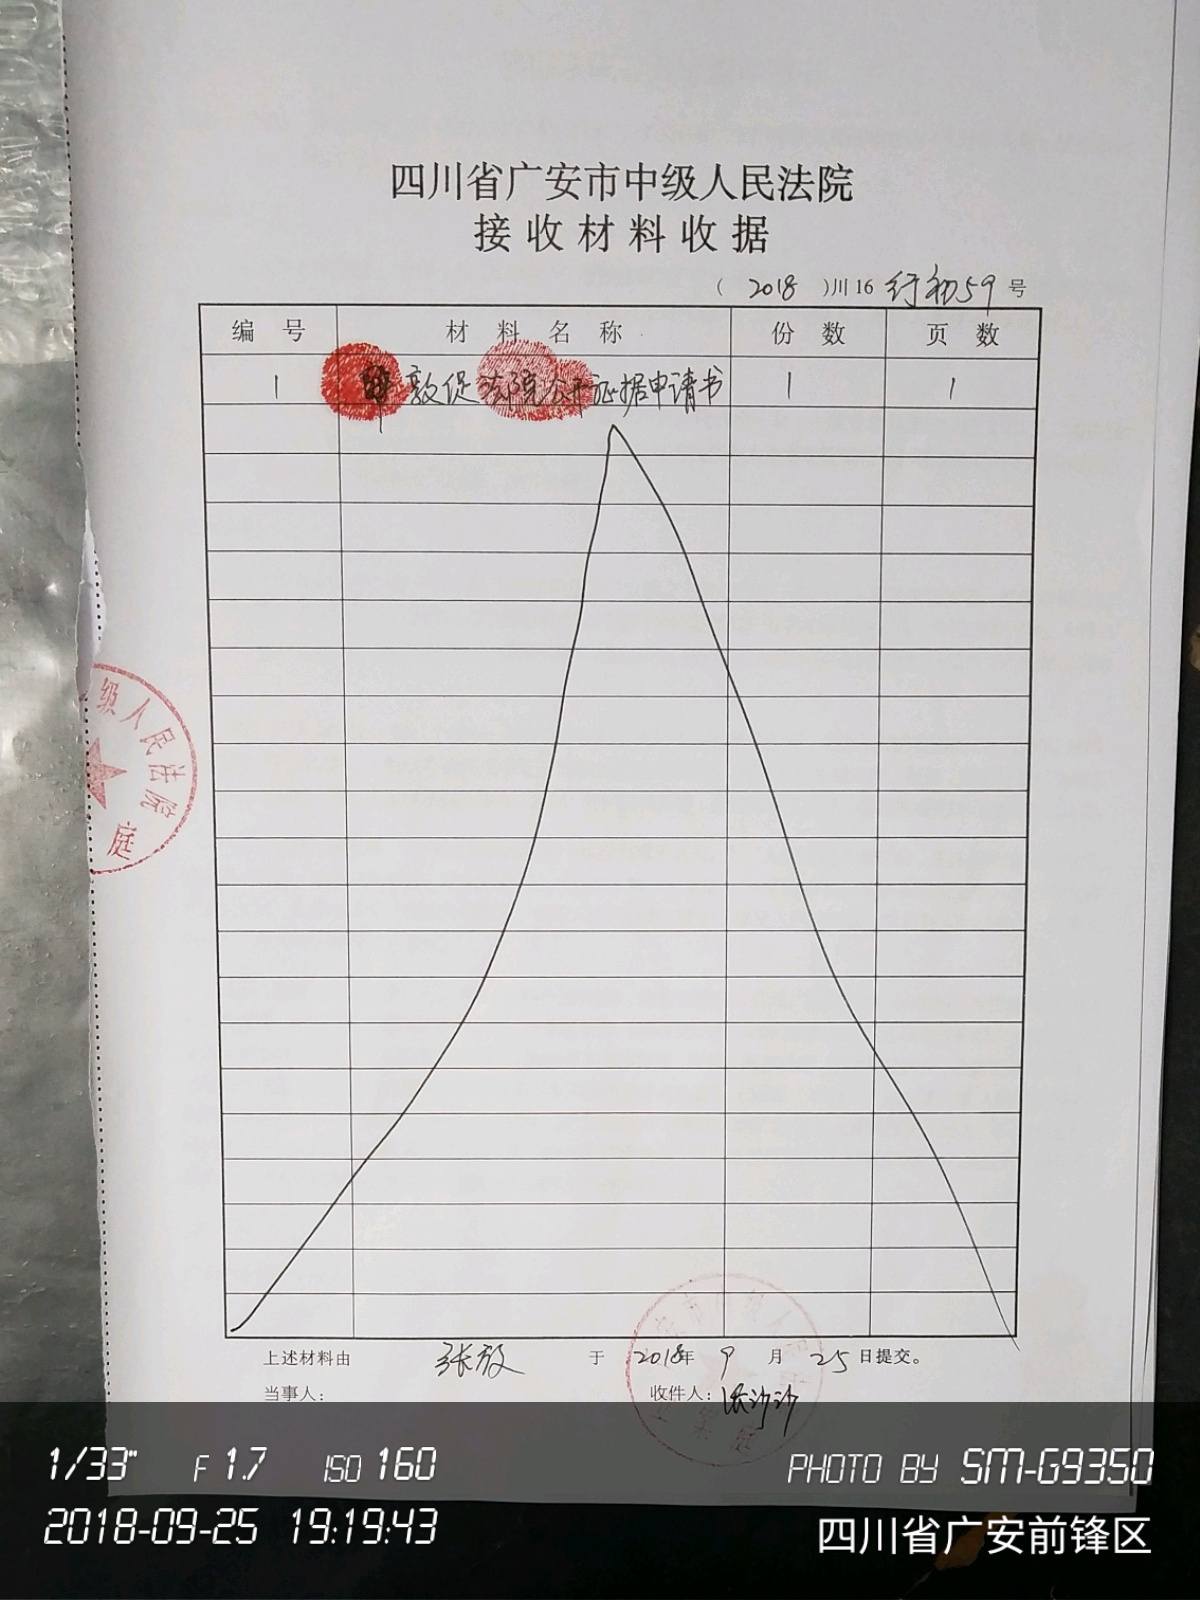 四川省广安市中级人民法院
接收材料收据
( 2018 )川16 行初59 号
编号 材料名称 份数 页数
1 敦促法院公开证据申请书 1 1
级人民法院
庭
上述材料由 张放 于 2018年 9 月 25 日提交。
当事人: 收件人:
1/33" F 1.7 ISO 160 PHOTO BY SM-G9350
2018-09-25 19:19:43 四川省广安前锋区